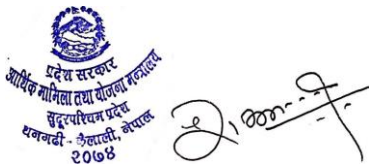 प्रदेश सरकार
आर्थिक मामिला तथा योजना मन्त्रालय
सुदूरपश्चिम प्रदेश
धनगढी - कैलाली, नेपाल
२०७४